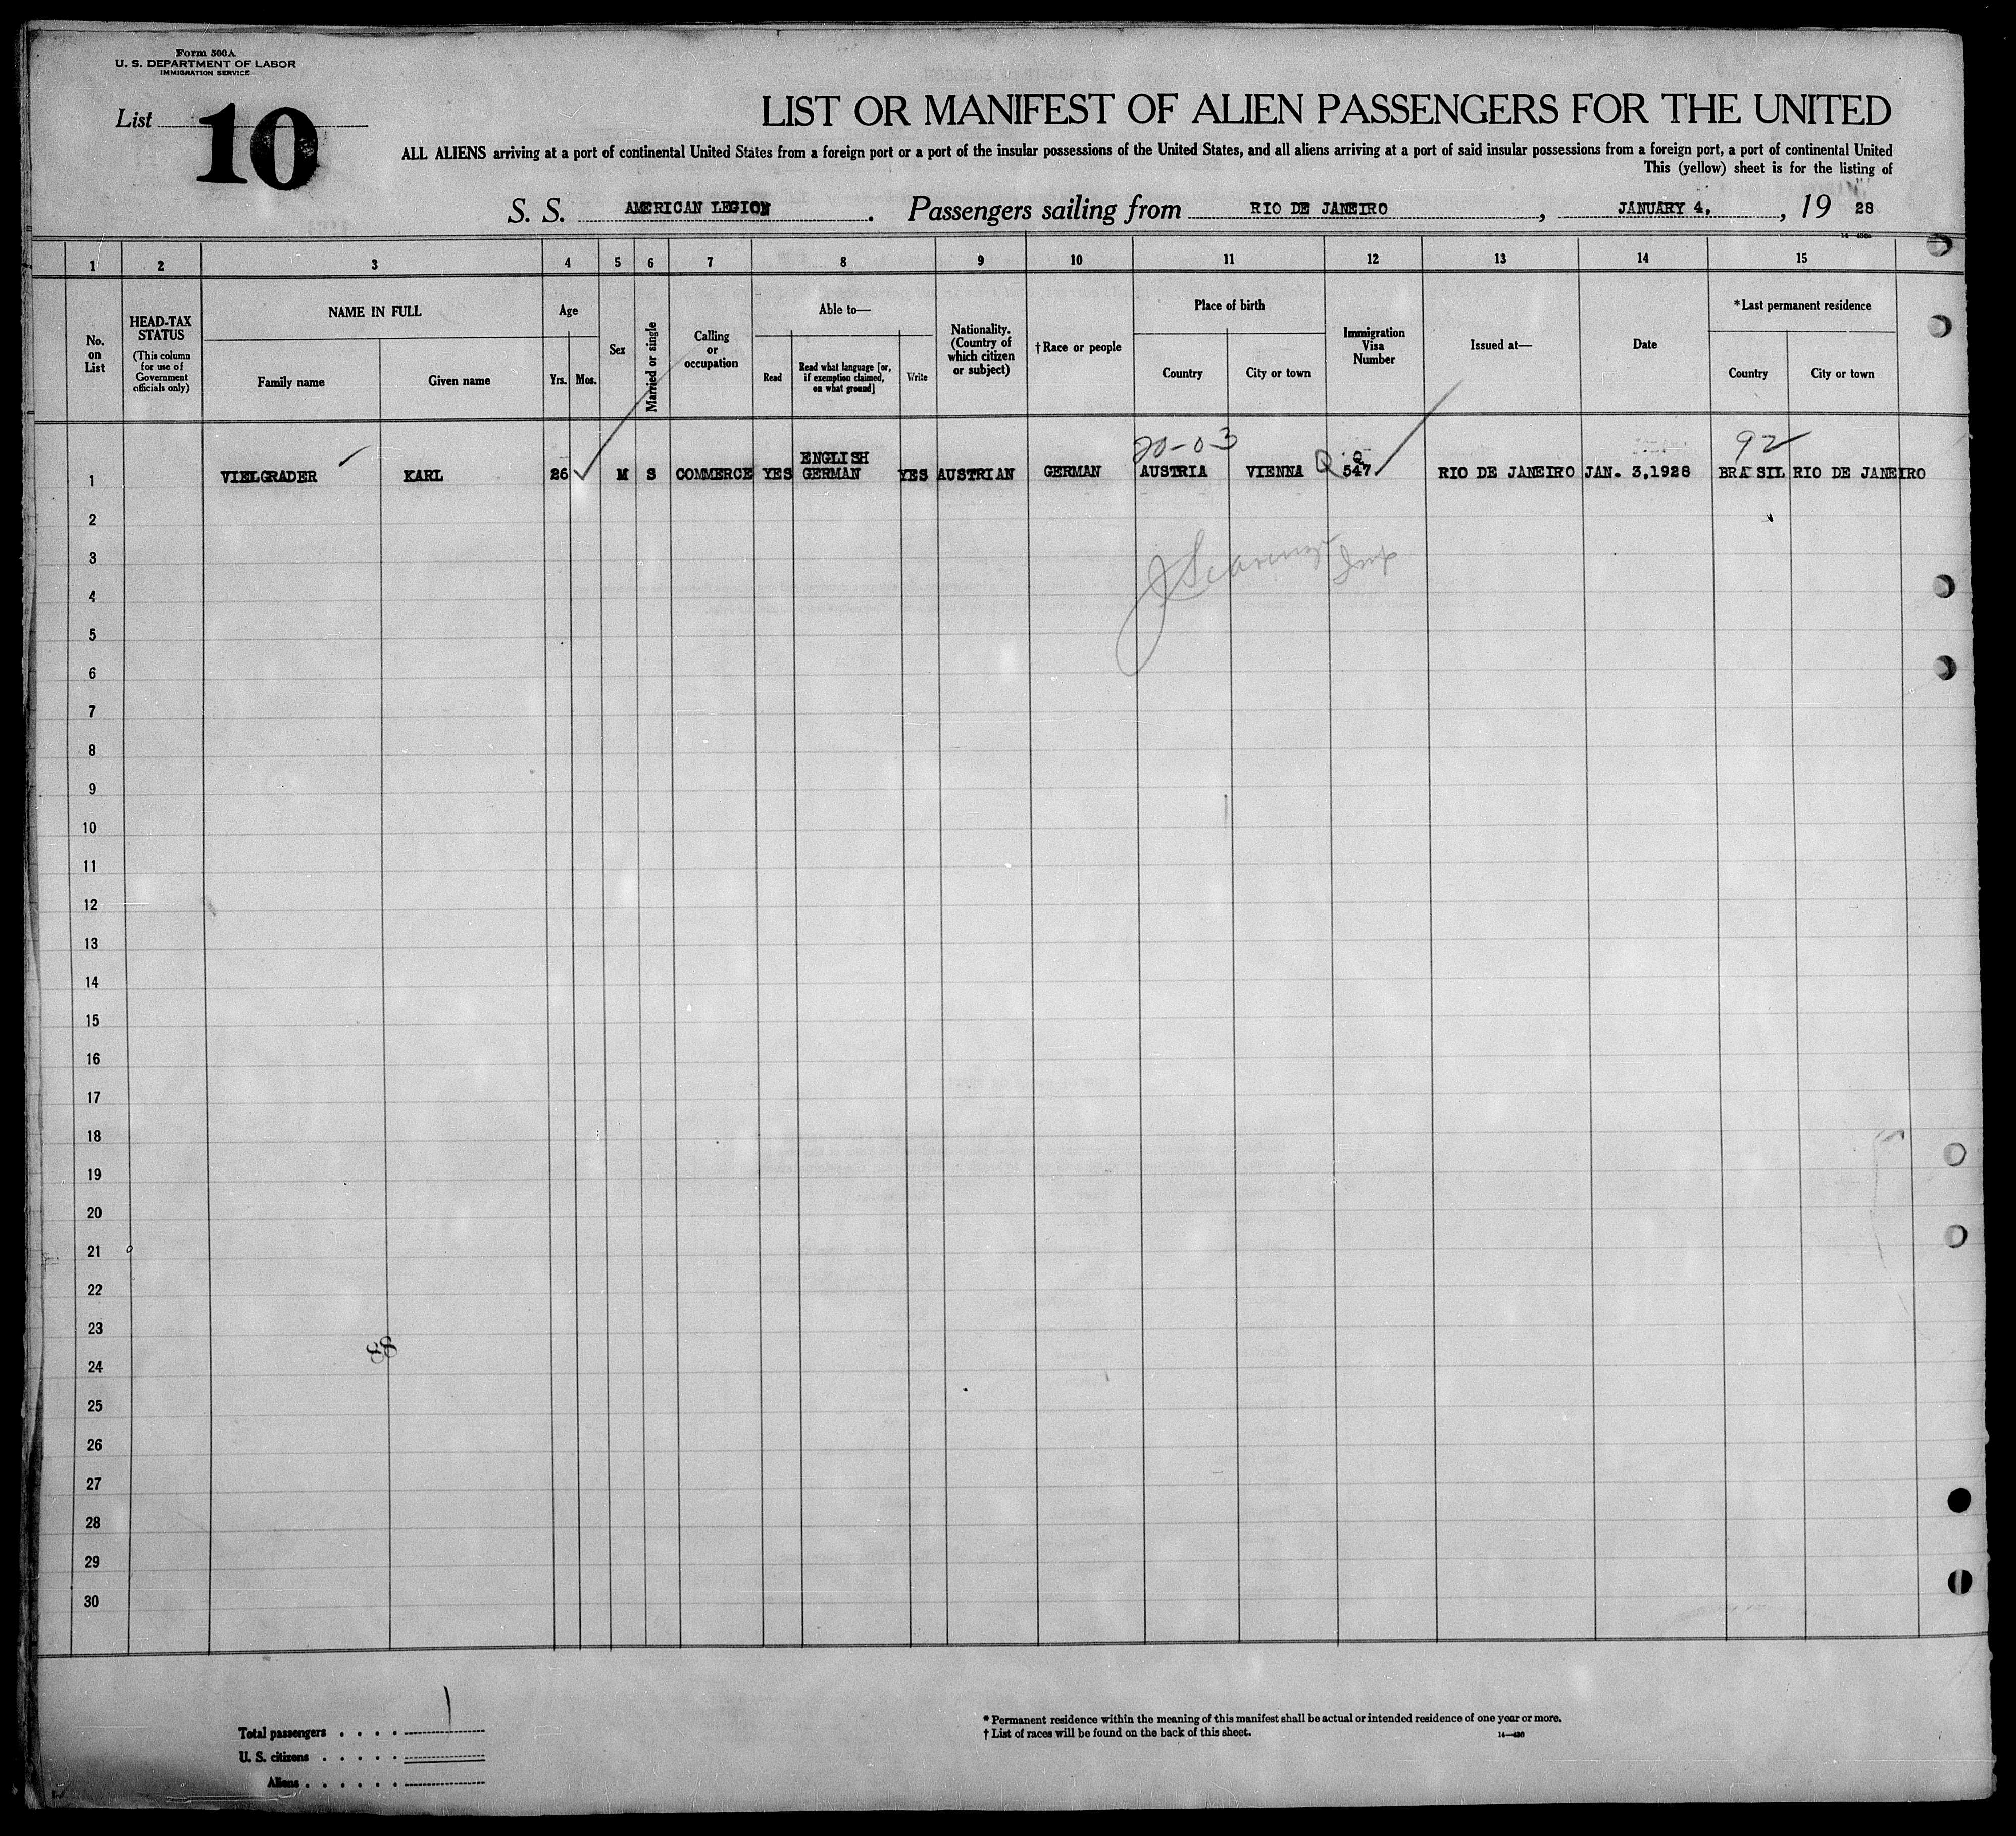 Form 500A
U. S. DEPARTMENT OF LABOR
IMMIGRATION SERVICE
List 10
LIST OR MANIFEST OF ALIEN PASSENGERS FOR THE UNITED
ALL ALIENS arriving at a port of continental United States from a foreign port or a port of the insular possessions of the United States, and all aliens arriving at a port of said insular possessions from a foreign port, a port of continental United
This (yellow) sheet is for the listing of
S. S. AMERICAN LEGION. Passengers sailing from RIO DE JANEIRO, JANUARY 4, , 19 28
1 2 3 4 5 6 7 8 9 10 11 12 13 14 15
No. on List
HEAD-TAX STATUS
(This column for use of Government officials only)
NAME IN FULL
Family name
Given name
Age
Yrs.
Mos.
Sex
Married or single
Calling or occupation
Able to—
Read
Read what language [or, if exemption claimed, on what ground]
Write
Nationality. (Country of which citizen or subject)
†Race or people
Place of birth
Country
City or town
Immigration Visa Number
Issued at—
Date
*Last permanent residence
Country
City or town
20-03
92
ENGLISH
1 VIELGRADER KARL 26 M S COMMERCE YES GERMAN YES AUSTRIAN GERMAN AUSTRIA VIENNA Q 547 RIO DE JANEIRO JAN. 3,1928 BRASIL RIO DE JANEIRO
2
3
4
5
6
7
8
9
10
11
12
13
14
15
16
17
18
19
20
21
22
23
88
24
25
26
27
28
29
30
Total passengers . . . . 1
U. S. citizens . . . . .
Aliens . . . . . .
* Permanent residence within the meaning of this manifest shall be actual or intended residence of one year or more.
† List of races will be found on the back of this sheet.